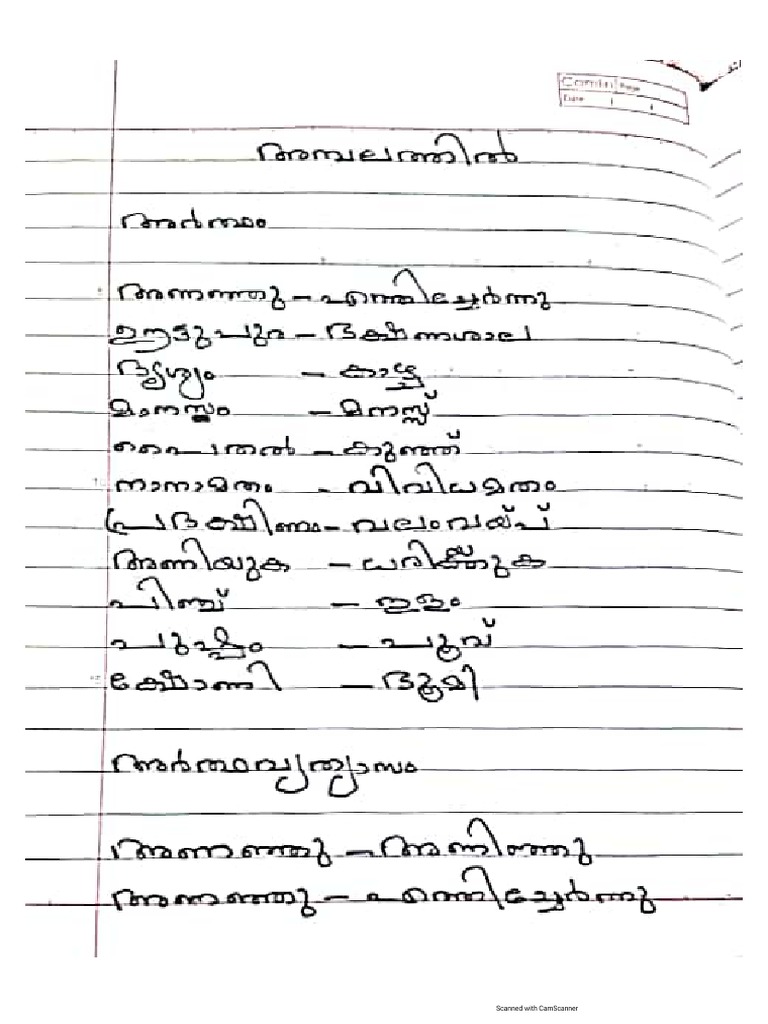 അമ്പലത്തിൽ
അർത്ഥം
അണഞ്ഞു – എത്തിച്ചേർന്നു
ഊട്ടുപുര – ഭക്ഷണശാല
ദൃശ്യം – കാഴ്ച
മാനസം – മനസ്സ്
പൈതൽ – കുഞ്ഞ്
നാനാമതം - വിവിധമതം
പ്രദക്ഷിണം – വലംവയ്പ്
അണിയുക – ധരിക്കുക
പിഞ്ച് – ഇളം
പുഷ്പം – പൂവ്
ക്ഷോണി – ഭൂമി
അർത്ഥവ്യത്യാസം
അണഞ്ഞു – അണിഞ്ഞു
അണഞ്ഞു – എത്തിച്ചേർന്നു
Scanned with CamScanner